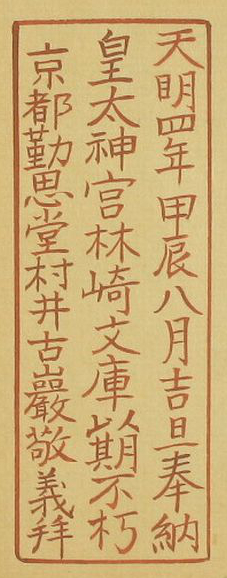 天明四年甲辰八月吉旦奉納
皇太神宮林崎文庫以期不朽
京都勤思堂村井古巖敬義拜